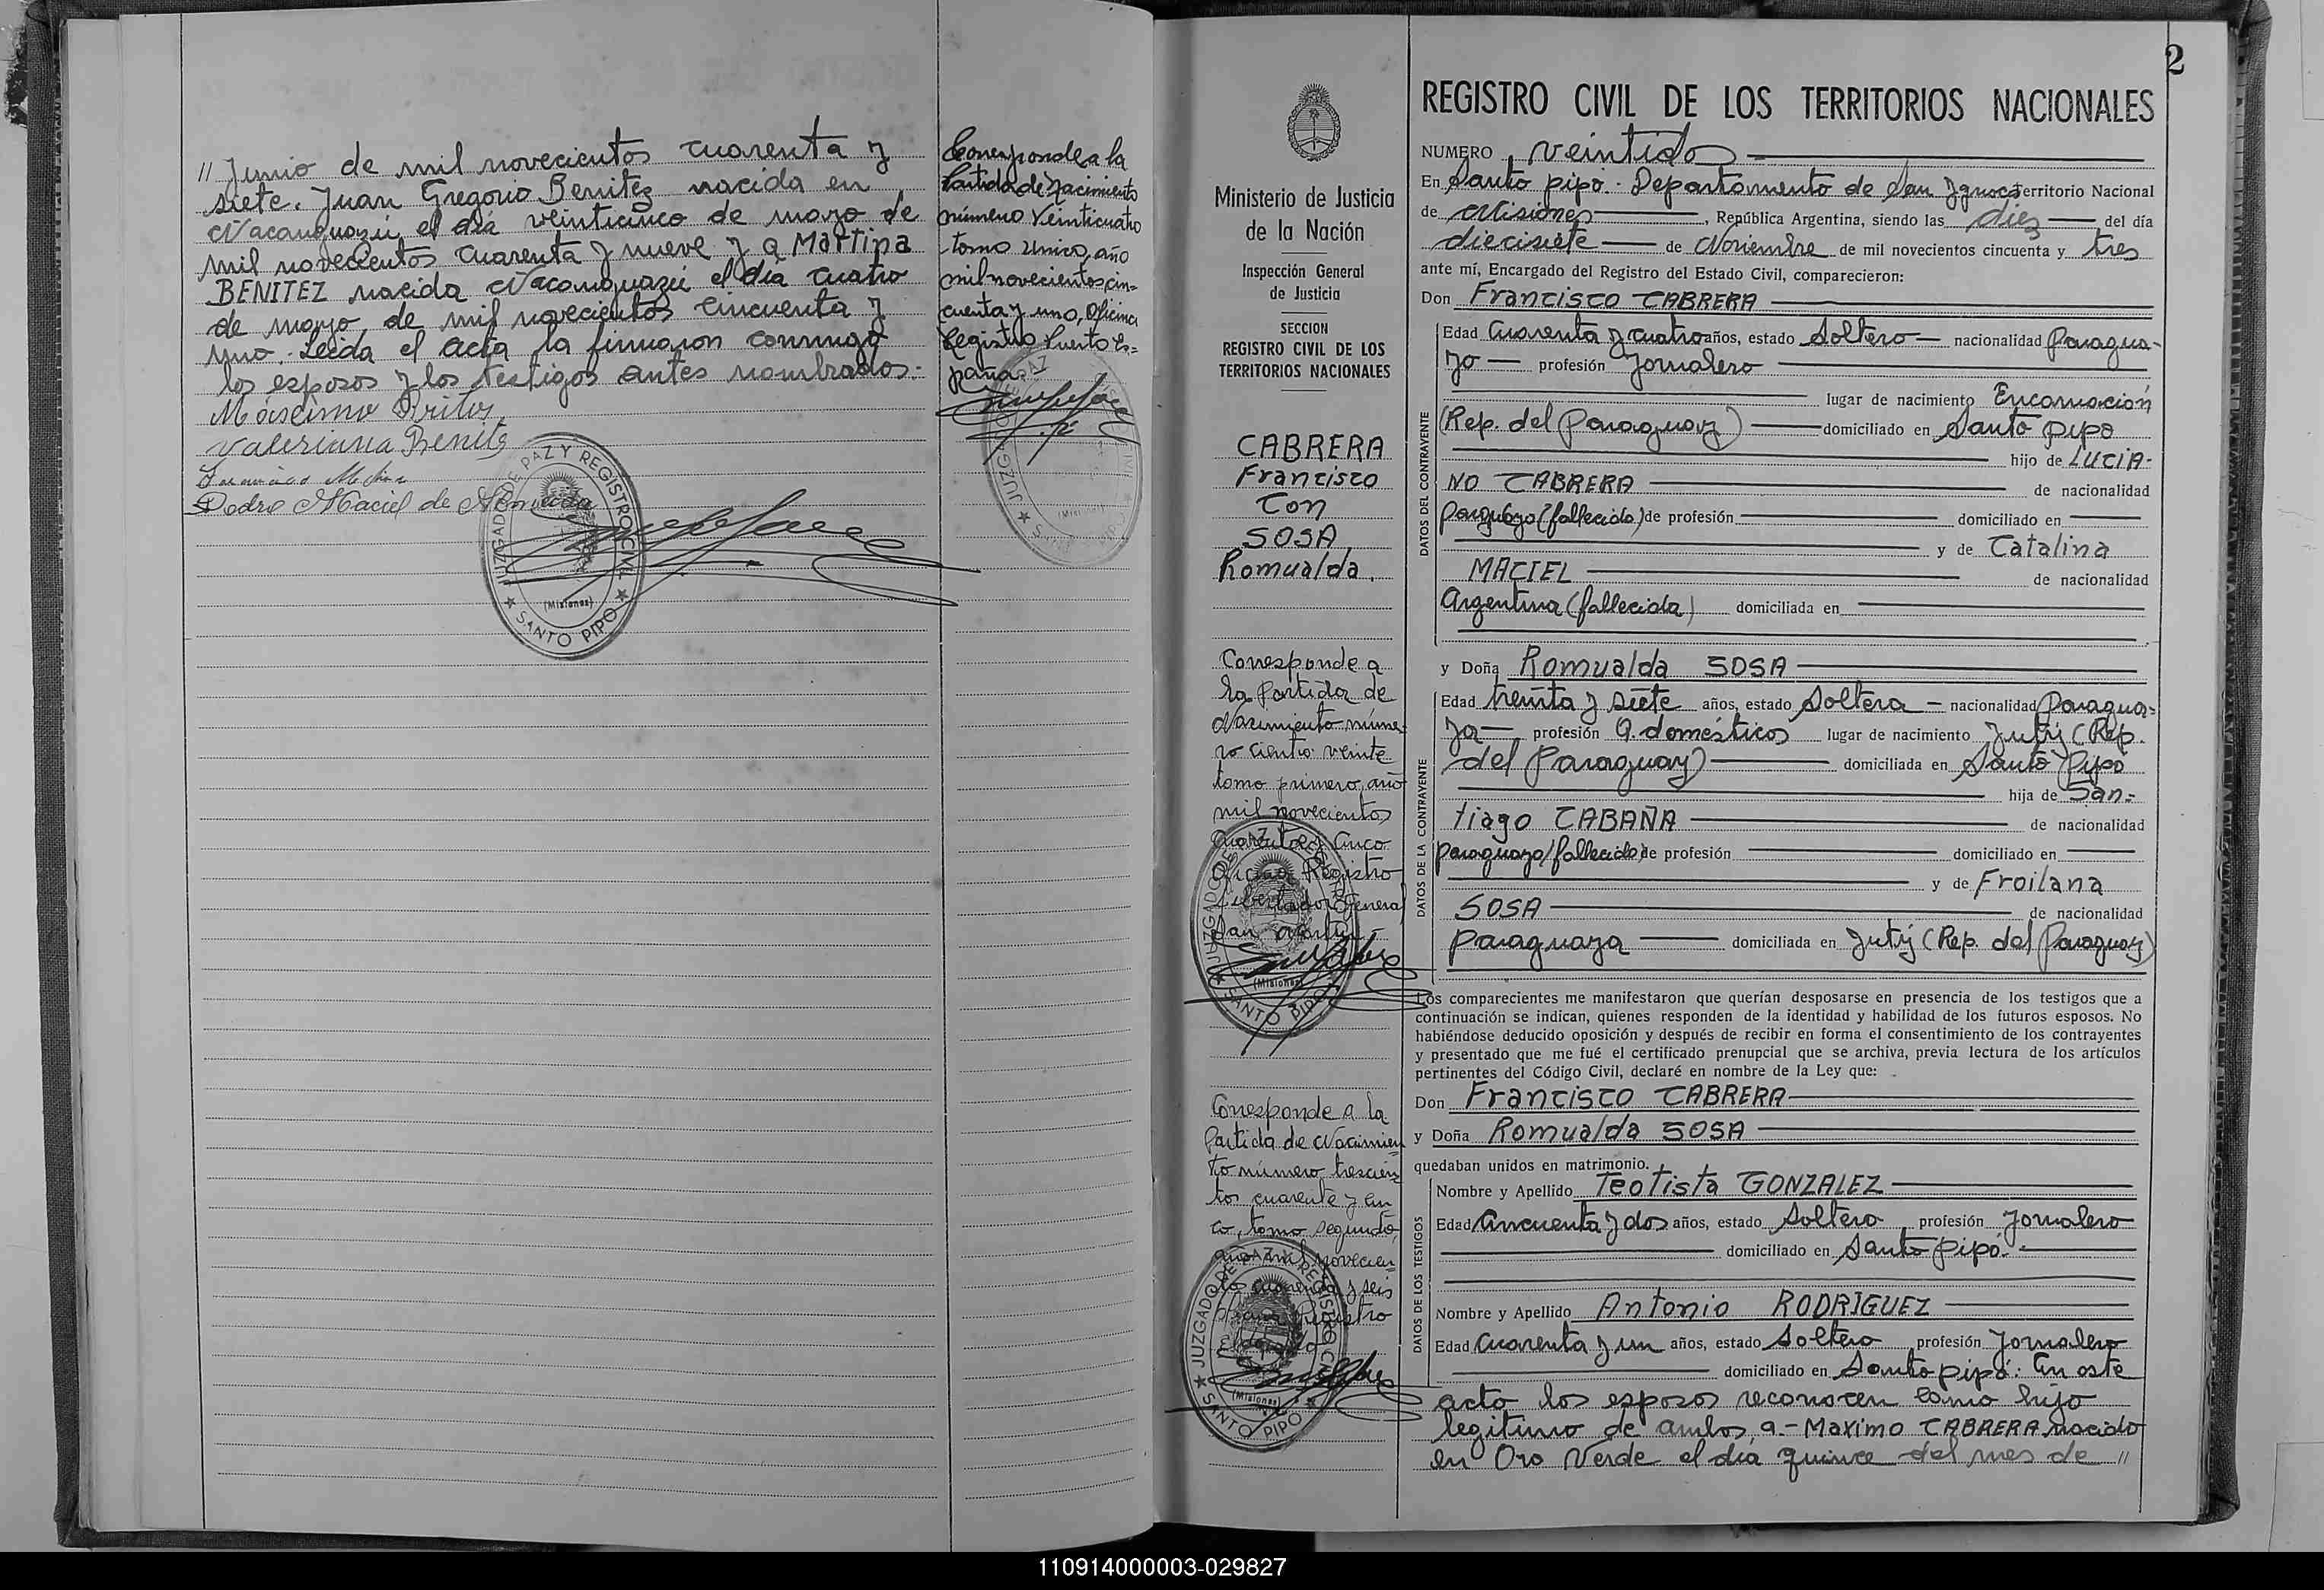 // Junio de mil novecientos cuarenta y
siete. Juan Gregorio Benitez nacida en
Ñacanguazú el día veinticinco de mayo de
mil novecientos cuarenta y nueve y a Martina
BENITEZ nacida Ñacanguazú el día cuatro
de mayo de mil novecientos cincuenta y
uno. Leída el acta la firmaron conmigo
los esposos y los testigos antes nombrados.-
Máscimo Britos
Valeriana Benites
Pedro Maciel de
JUZGADO DE PAZ Y REGISTRO CIVIL
(Misiones)
SANTO PIPO
Corresponde a la
Partida de Nacimiento
número veinticuatro
tomo unico, año
mil novecientos cin=
cuenta y uno, Oficina
Registro Puerto Es=
paña
2
Ministerio de Justicia
de la Nación
Inspección General
de Justicia
SECCION
REGISTRO CIVIL DE LOS
TERRITORIOS NACIONALES
CABRERA
Francisco
Con
SOSA
Romualda.
Corresponde a
la Partida de
Nacimiento núme-
ro ciento veinte
tomo primero, año
mil novecientos
cuarenta y cinco
Oficina Registro
Libertador General
San Martín.-
JUZGADO DE PAZ
(Misiones)
SANTO PIPO
Corresponde a la
Partida de Nacimien
to número trescien=
tos cuarenta y cin
co, tomo segundo,
año mil novecien=
tos cuarenta y seis
Registro
JUZGADO DE PAZ Y REGISTRO CIVIL
(Misiones)
SANTO PIPO
REGISTRO CIVIL DE LOS TERRITORIOS NACIONALES
NUMERO veintidos
En Santo pipó - Departamento de San Ignacio Territorio Nacional
de Misiones, República Argentina, siendo las diez del día
diecisiete de Noviembre de mil novecientos cincuenta y tres
ante mí, Encargado del Registro del Estado Civil, comparecieron:
Don Francisco CABRERA
DATOS DEL CONTRAYENTE
Edad Cuarenta y cuatro años, estado Soltero nacionalidad Paragua-
yo profesión Jornalero
lugar de nacimiento Encarnación
(Rep. del Paraguay) domiciliado en Santo pipó
hijo de LUCIA-
NO CABRERA de nacionalidad
Paraguayo (fallecido) de profesión domiciliado en
y de Catalina
MACIEL de nacionalidad
Argentina (fallecida) domiciliada en
y Doña Romualda SOSA
DATOS DE LA CONTRAYENTE
Edad treinta y siete años, estado Soltera - nacionalidad Paragua=
ya profesión Q. domésticos lugar de nacimiento Jutÿ (Rep.
del Paraguay) domiciliada en Santo Pipó
hija de San=
tiago CABAÑA de nacionalidad
paraguayo (fallecido) de profesión domiciliado en
y de Froilana
SOSA de nacionalidad
paraguaya domiciliada en Jutÿ (Rep. del Paraguay)
Los comparecientes me manifestaron que querían desposarse en presencia de los testigos que a
continuación se indican, quienes responden de la identidad y habilidad de los futuros esposos. No
habiéndose deducido oposición y después de recibir en forma el consentimiento de los contrayentes
y presentado que me fué el certificado prenupcial que se archiva, previa lectura de los artículos
pertinentes del Código Civil, declaré en nombre de la Ley que:
Don Francisco CABRERA
y Doña Romualda SOSA
quedaban unidos en matrimonio.
DATOS DE LOS TESTIGOS
Nombre y Apellido Teotista GONZALEZ
Edad Cincuenta y dos años, estado Soltero, profesión Jornalero
domiciliado en Santo pipó.-
Nombre y Apellido Antonio RODRIGUEZ
Edad Cuarenta y un años, estado Soltero profesión Jornalero
domiciliado en Santo pipó: En este
acto los esposos reconocen como hijo
legitimo de ambos, a- Maximo CABRERA nacido
en Oro Verde el día quince del mes de //
110914000003-029827